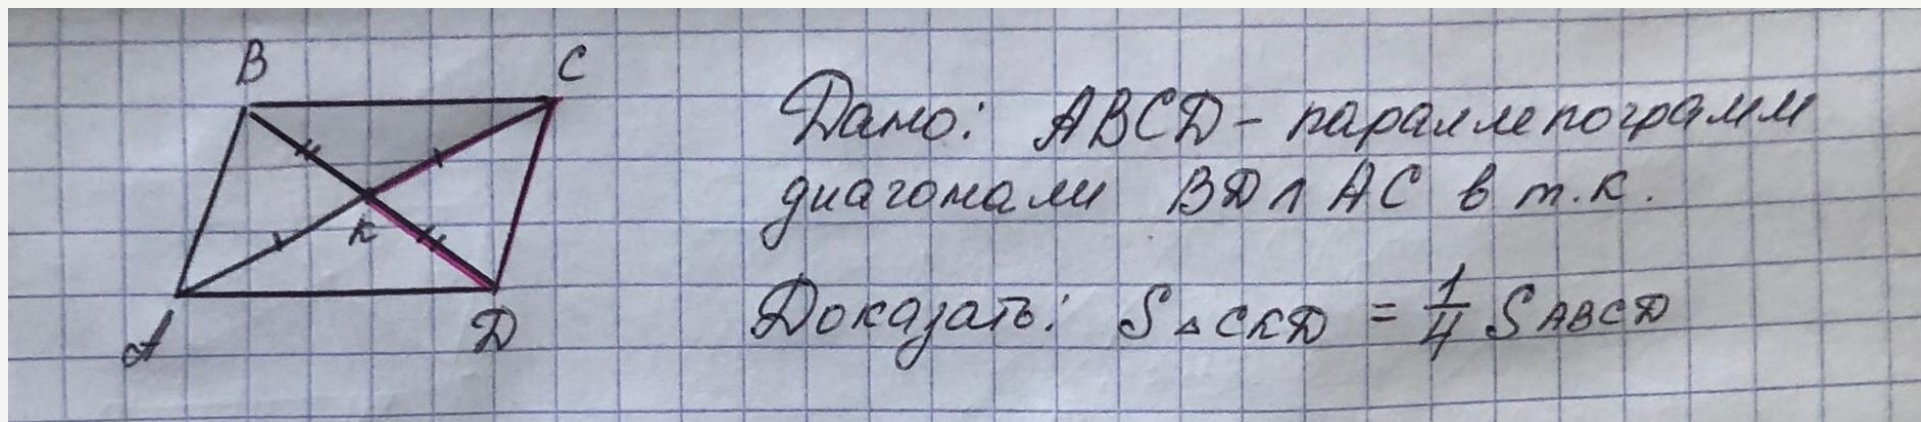 B C
Дано: ABCD - параллелограмм
диагонали BD ∩ AC в т. K.
K
A D
Доказать: S△CKD = 1/4 SABCD